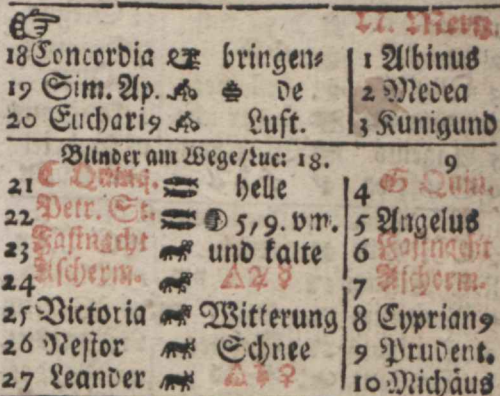 N. Mertz.
18 Concordia bringen= 1 Albinus
19 Sim. Ap. de 2 Medea
20 Euchari9 Lufft. 3 Kunigund
Blinder am Wege/Luc: 18. 9
21 C Quinq. helle 4 G Quin.
22 Petr. St. 5, 9. vm. 5 Angelus
23 Fastnacht und kalte 6 Fastnacht
24 Ascherm. △♃☿ 7 Ascherm.
25 Victoria Witterung 8 Cyprian9
26 Nestor Schnee 9 Prudent.
27 Leander △♄♀ 10 Michäus